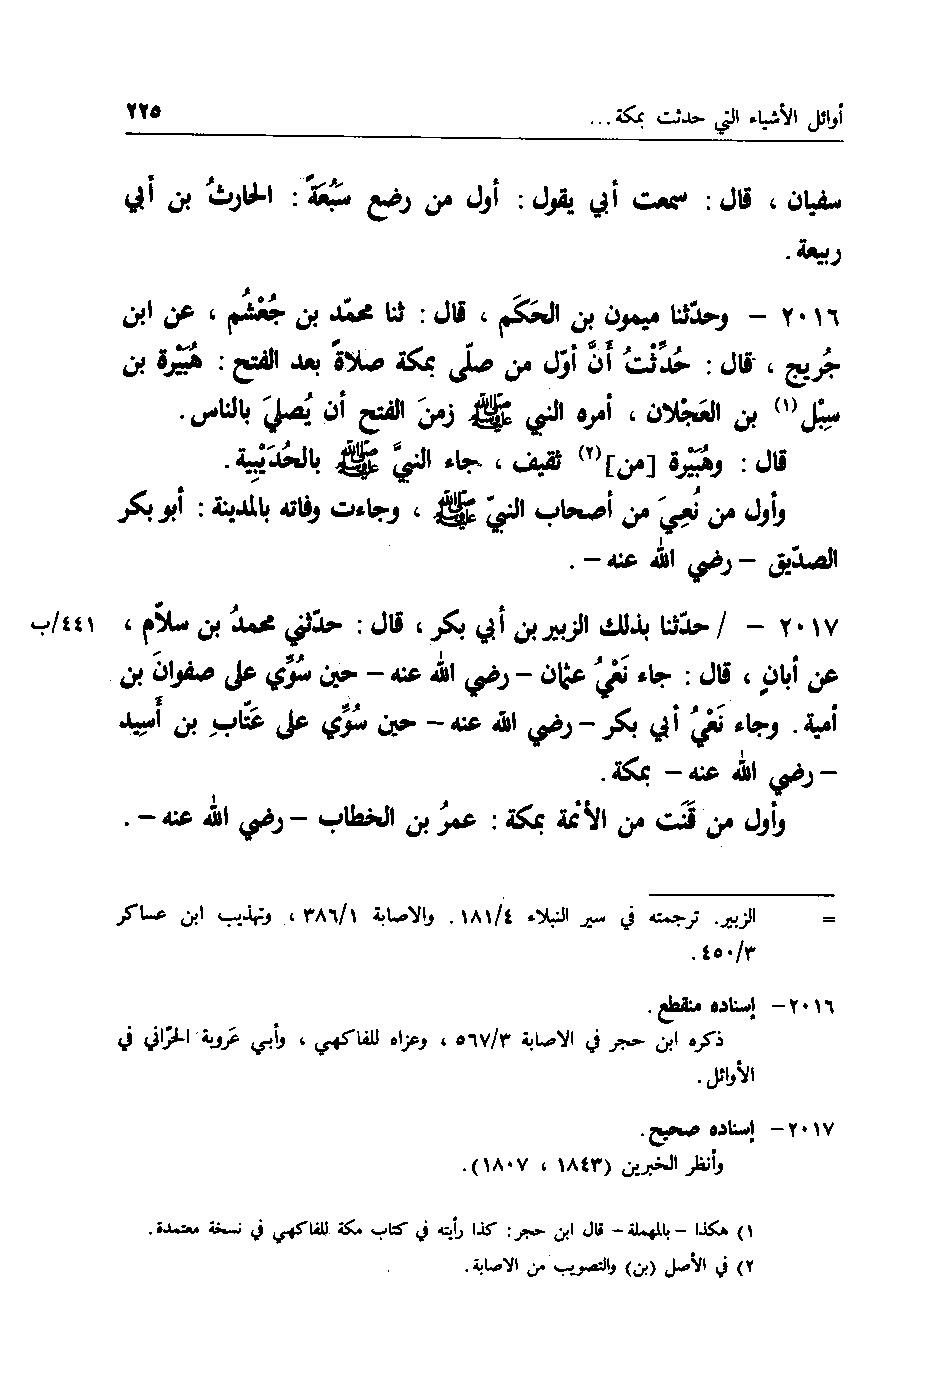 أوائل الأشياء التي حدثت بمكة...
٢٢٥
سفيان ، قال : سمعت أبي يقول : أول من رضع سَبُعَةً : الحارثُ بن أبي
ربيعة .
٢٠١٦ – وحدّثنا ميمون بن الحَكَم ، قال : ثنا محمّد بن جُعْشُم ، عن ابن
جُريج ، قال : حُدِّثْتُ أَنَّ أوّل من صلّى بمكة صلاةً بعد الفتح : هُبَيْرة بن
سِبْل(١) بن العَجْلان ، أمره النبي ﷺ زمنَ الفتح أن يُصليَ بالناس .
قال : وهُبَيْرة [من](٢) ثقيف ، جاء النبيَّ ﷺ بالحُدَيْبِية .
وأول من نُعِيَ من أصحاب النبيّ ﷺ ، وجاءت وفاته بالمدينة : أبو بكر
الصدّيق – رضي الله عنه – .
٢٠١٧ – / حدّثنا بذلك الزبير بن أبي بكر ، قال : حدّثني محمدُ بن سلاّم ، ٤٤١/ب
عن أبانٍ ، قال : جاء نَعْيُ عثمان – رضي الله عنه – حين سُوِّي على صفوانَ بن
أمية . وجاء نَعْيُ أبي بكر – رضي الله عنه – حين سُوِّي على عَتّابِ بن أَسِيد
– رضي الله عنه – بمكة .
وأول من قَنَت من الأئمة بمكة : عمرُ بن الخطاب – رضي الله عنه – .
= الزبير. ترجمته في سير النبلاء ١٨١/٤ . والاصابة ٣٨٦/١ ، وتهذيب ابن عساكر
٤٥٠/٣ .
٢٠١٦ – إسناده منقطع .
ذكره ابن حجر في الاصابة ٥٦٧/٣ ، وعزاه للفاكهي ، وأبي عَروبة الحَرّاني في
الأوائل .
٢٠١٧ – إسناده صحيح .
وأنظر الخبرين (١٨٤٣ ، ١٨٠٧) .
١) هكذا – بالمهملة – قال ابن حجر : كذا رأيته في كتاب مكة للفاكهي في نسخة معتمدة .
٢) في الأصل (بن) والتصويب من الاصابة .